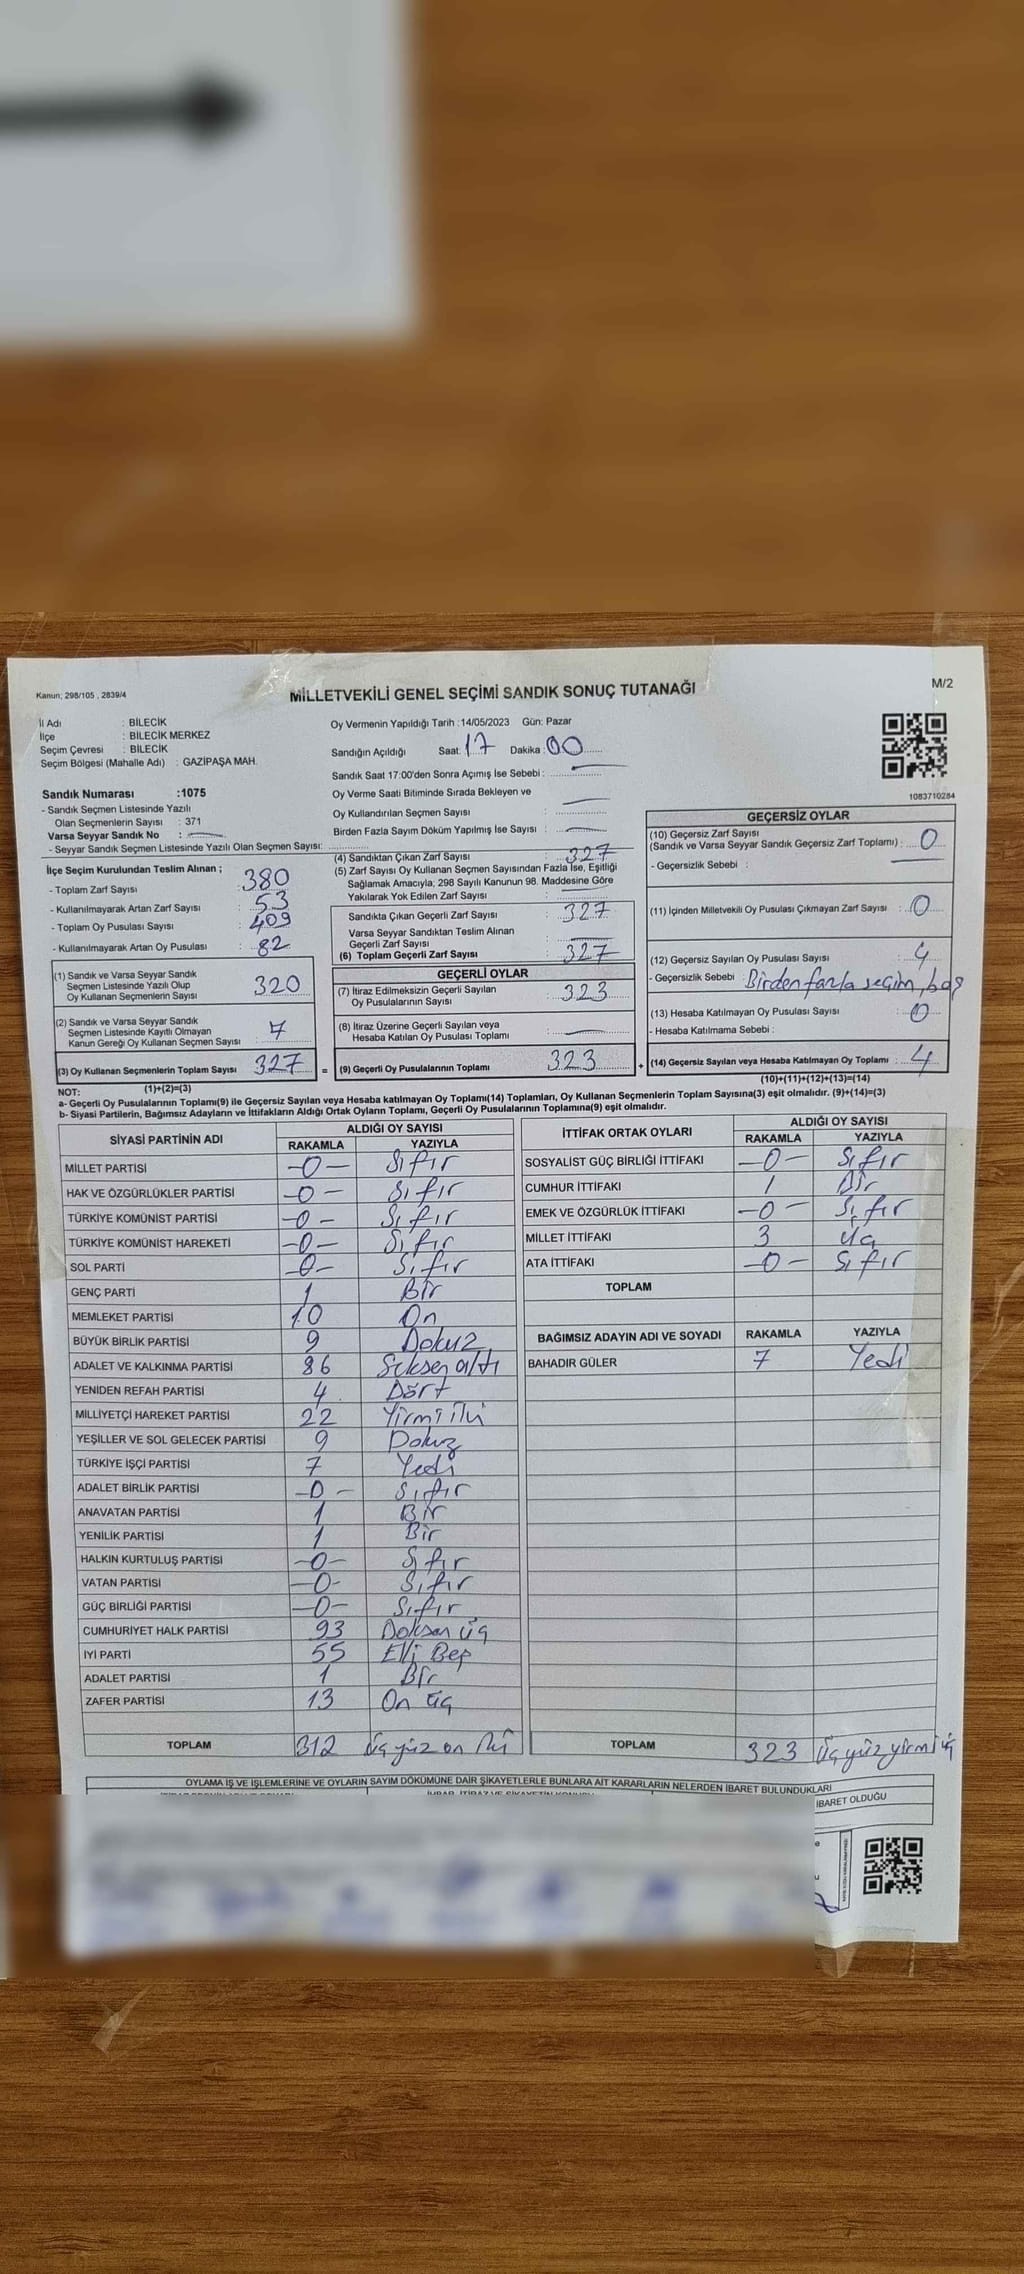 Kanun; 298/105 , 2839/4
MİLLETVEKİLİ GENEL SEÇİMİ SANDIK SONUÇ TUTANAĞI
M/2
İl Adı : BİLECİK
İlçe : BİLECİK MERKEZ
Seçim Çevresi : BİLECİK
Seçim Bölgesi (Mahalle Adı) : GAZİPAŞA MAH.
Oy Vermenin Yapıldığı Tarih :14/05/2023 Gün: Pazar
Sandığın Açıldığı Saat: 17 Dakika : 00
Sandık Saat 17:00'den Sonra Açımış İse Sebebi :
Oy Verme Saati Bitiminde Sırada Bekleyen ve
Oy Kullandırılan Seçmen Sayısı
Birden Fazla Sayım Döküm Yapılmış İse Sayısı :
1083710284
Sandık Numarası :1075
- Sandık Seçmen Listesinde Yazılı
Olan Seçmenlerin Sayısı : 371
Varsa Seyyar Sandık No :
- Seyyar Sandık Seçmen Listesinde Yazılı Olan Seçmen Sayısı:
İlçe Seçim Kurulundan Teslim Alınan ;
- Toplam Zarf Sayısı : 380
- Kullanılmayarak Artan Zarf Sayısı : 53
- Toplam Oy Pusulası Sayısı : 409
- Kullanılmayarak Artan Oy Pusulası : 82
(1) Sandık ve Varsa Seyyar Sandık
Seçmen Listesinde Yazılı Olup
Oy Kullanan Seçmenlerin Sayısı : 320
(2) Sandık ve Varsa Seyyar Sandık
Seçmen Listesinde Kayıtlı Olmayan
Kanun Gereği Oy Kullanan Seçmen Sayısı : 7
(3) Oy Kullanan Seçmenlerin Toplam Sayısı 327 =
(1)+(2)=(3)
(4) Sandıktan Çıkan Zarf Sayısı : 327
(5) Zarf Sayısı Oy Kullanan Seçmen Sayısından Fazla İse, Eşitliği
Sağlamak Amacıyla, 298 Sayılı Kanunun 98. Maddesine Göre
Yakılarak Yok Edilen Zarf Sayısı :
Sandıkta Çıkan Geçerli Zarf Sayısı : 327
Varsa Seyyar Sandıktan Teslim Alınan
Geçerli Zarf Sayısı :
(6) Toplam Geçerli Zarf Sayısı : 327
GEÇERLİ OYLAR
(7) İtiraz Edilmeksizin Geçerli Sayılan
Oy Pusulalarının Sayısı : 323
(8) İtiraz Üzerine Geçerli Sayılan veya
Hesaba Katılan Oy Pusulası Toplamı :
(9) Geçerli Oy Pusulalarının Toplamı : 323 +
GEÇERSİZ OYLAR
(10) Geçersiz Zarf Sayısı
(Sandık ve Varsa Seyyar Sandık Geçersiz Zarf Toplamı) : 0
- Geçersizlik Sebebi :
(11) İçinden Milletvekili Oy Pusulası Çıkmayan Zarf Sayısı : 0
(12) Geçersiz Sayılan Oy Pusulası Sayısı : 4
- Geçersizlik Sebebi : Birden fazla seçim, boş
(13) Hesaba Katılmayan Oy Pusulası Sayısı : 0
- Hesaba Katılmama Sebebi :
(14) Geçersiz Sayılan veya Hesaba Katılmayan Oy Toplamı : 4
(10)+(11)+(12)+(13)=(14)
NOT:
a- Geçerli Oy Pusulalarının Toplamı(9) ile Geçersiz Sayılan veya Hesaba katılmayan Oy Toplamı(14) Toplamları, Oy Kullanan Seçmenlerin Toplam Sayısına(3) eşit olmalıdır. (9)+(14)=(3)
b- Siyasi Partilerin, Bağımsız Adayların ve İttifakların Aldığı Ortak Oyların Toplamı, Geçerli Oy Pusulalarının Toplamına(9) eşit olmalıdır.
SİYASİ PARTİNİN ADI ALDIĞI OY SAYISI
RAKAMLA YAZIYLA
MİLLET PARTİSİ -0- Sıfır
HAK VE ÖZGÜRLÜKLER PARTİSİ -0- Sıfır
TÜRKİYE KOMÜNİST PARTİSİ -0- Sıfır
TÜRKİYE KOMÜNİST HAREKETİ -0- Sıfır
SOL PARTİ -0- Sıfır
GENÇ PARTİ 1 Bir
MEMLEKET PARTİSİ 10 On
BÜYÜK BİRLİK PARTİSİ 9 Dokuz
ADALET VE KALKINMA PARTİSİ 86 Seksen altı
YENİDEN REFAH PARTİSİ 4 Dört
MİLLİYETÇİ HAREKET PARTİSİ 22 Yirmi iki
YEŞİLLER VE SOL GELECEK PARTİSİ 9 Dokuz
TÜRKİYE İŞÇİ PARTİSİ 7 Yedi
ADALET BİRLİK PARTİSİ -0- Sıfır
ANAVATAN PARTİSİ 1 Bir
YENİLİK PARTİSİ 1 Bir
HALKIN KURTULUŞ PARTİSİ -0- Sıfır
VATAN PARTİSİ -0- Sıfır
GÜÇ BİRLİĞİ PARTİSİ -0- Sıfır
CUMHURİYET HALK PARTİSİ 93 Doksan üç
İYİ PARTİ 55 Elli Beş
ADALET PARTİSİ 1 Bir
ZAFER PARTİSİ 13 On üç
TOPLAM 312 üç yüz on iki
İTTİFAK ORTAK OYLARI ALDIĞI OY SAYISI
RAKAMLA YAZIYLA
SOSYALİST GÜÇ BİRLİĞİ İTTİFAKI -0- Sıfır
CUMHUR İTTİFAKI 1 Bir
EMEK VE ÖZGÜRLÜK İTTİFAKI -0- Sıfır
MİLLET İTTİFAKI 3 üç
ATA İTTİFAKI -0- Sıfır
TOPLAM
BAĞIMSIZ ADAYIN ADI VE SOYADI RAKAMLA YAZIYLA
BAHADIR GÜLER 7 Yedi
TOPLAM 323 üç yüz yirmi üç
OYLAMA İŞ VE İŞLEMLERİNE VE OYLARIN SAYIM DÖKÜMÜNE DAİR ŞİKAYETLERLE BUNLARA AİT KARARLARIN NELERDEN İBARET BULUNDUKLARI
İBARET OLDUĞU